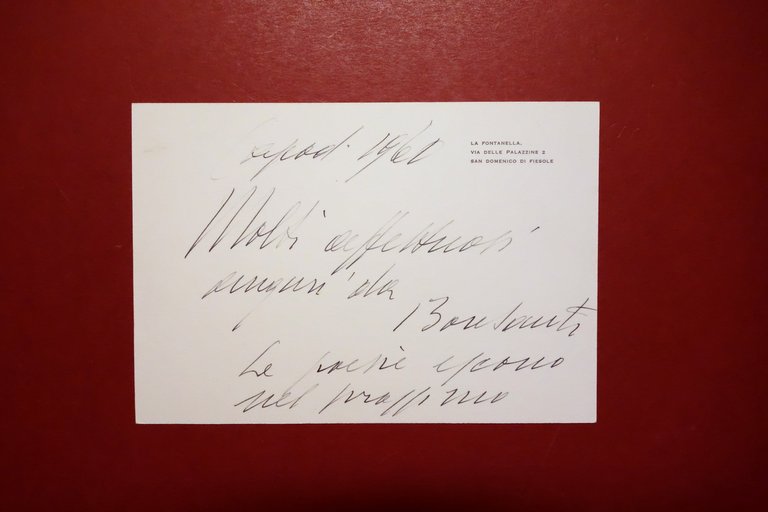 Capod. 1960
LA FONTANELLA.
VIA DELLE PALAZZINE 2
SAN DOMENICO DI FIESOLE
Molti affettuosi
auguri da
Bonsanti
Le poesie escono
nel prossimo